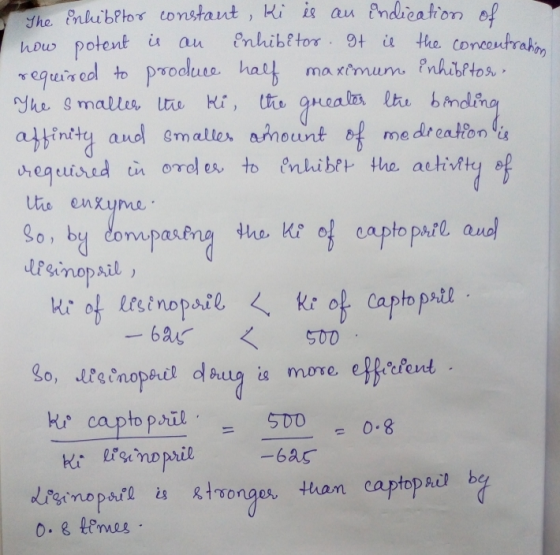 The inhibitor constant, Ki is an indication of
how potent is an inhibitor. It is the concentration
required to produce half maximum inhibitor.
The smaller the Ki, the greater the binding
affinity and smaller amount of medication is
required in order to inhibit the activity of
the enzyme.
So, by comparing the Ki of captopril and
lisinopril,
Ki of lisinopril < Ki of captopril.
- 625 < 500.
So, lisinopril drug is more efficient.
Ki captopril / Ki lisinopril = 500 / -625 = 0.8
Lisinopril is stronger than captopril by
0.8 times.